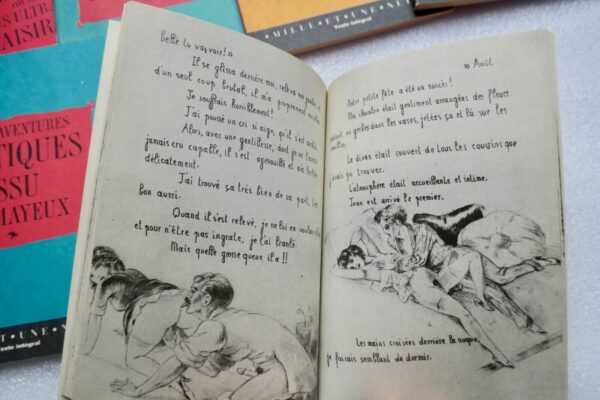 OU
US ULTR
AISIR
AVENTURES
TIQUES
SSU
MAYEUX
UNE
Texte intégral
MILLE ET UNE
Texte intégral
Belle tu vas voir! »
Il se glissa derrière moi, releva ma
d'un seul coup brutal, il m'a proprement
Je souffrais horriblement!
J'ai poussé un cri si aigu, qu'il s'est arrêté
Alors, avec une gentillesse, dont je ne l'aurais
jamais cru capable, il s'est agenouillé et m'a
délicatement.
J'ai trouvé ça très bien de sa part, très
bon aussi.
Quand il s'est relevé, je ne lui en voulais plus
et pour n'être pas ingrate, je l'ai branlé.
Mais quelle grosse queue il a!!
10 Août
Notre petite fête a été un succès!
Ma chambre était gentiment arrangée: des fleurs
en gerbes dans les vases, jetées çà et là sur les
Le divan était couvert de tous les coussins que
j'avais pu trouver.
L'atmosphère était accueillante et intime.
Jean est arrivé le premier.
Les mains croisées derrière la nuque,
je faisais semblant de dormir.